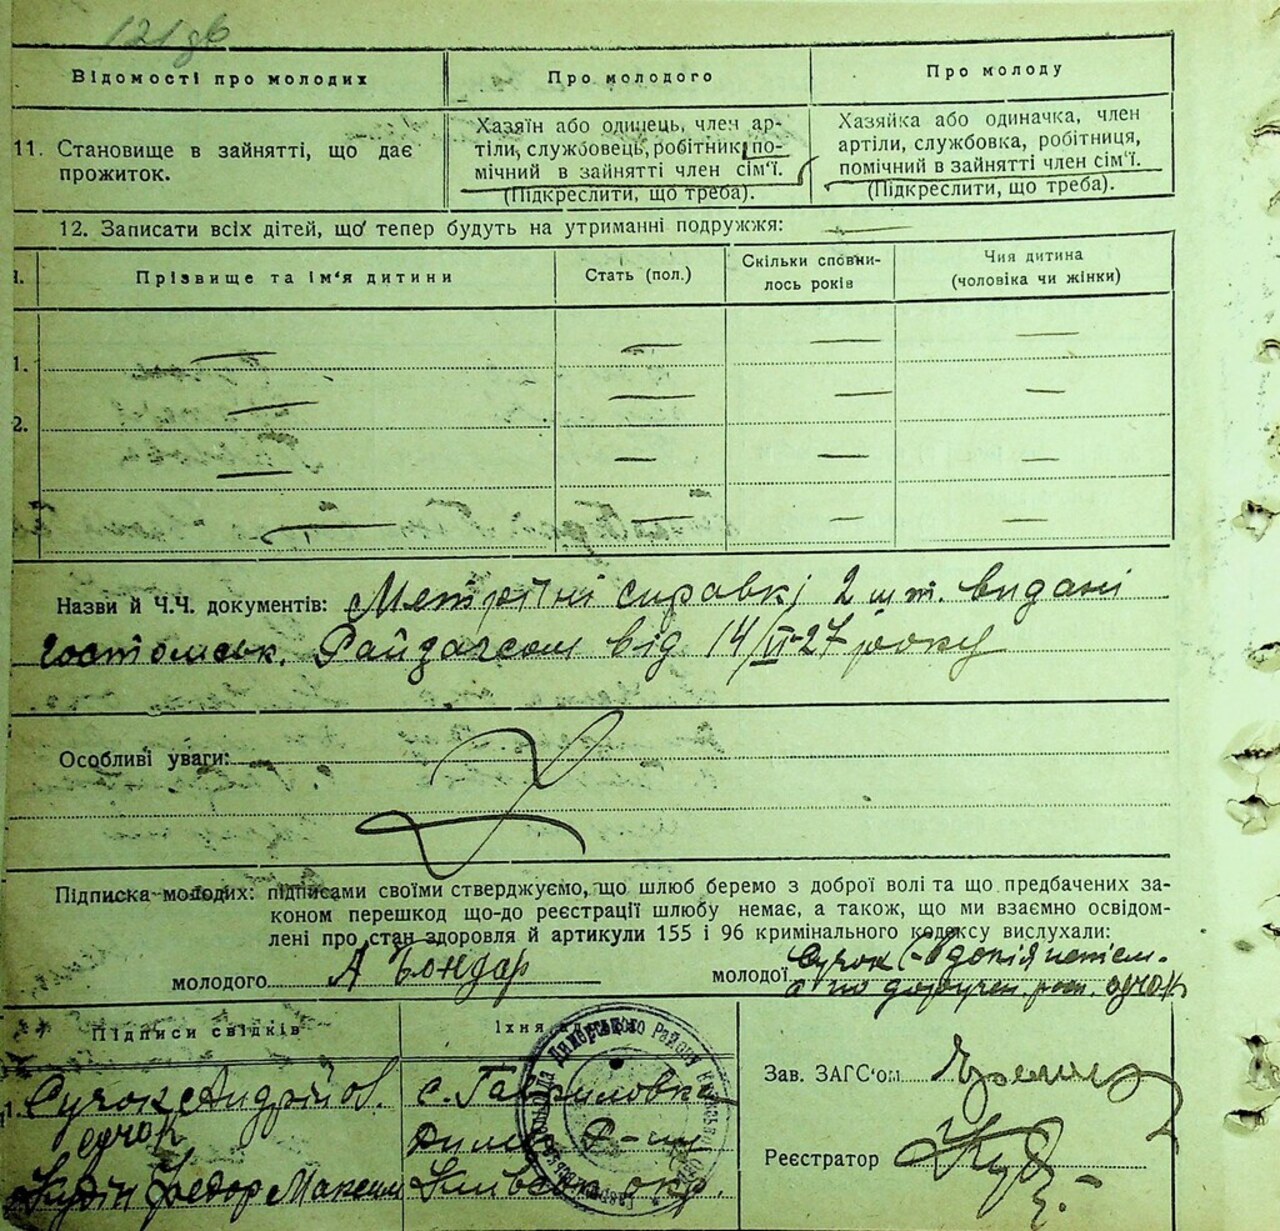 121 зв
Відомості про молодих
Про молодого
Про молоду
11. Становище в зайнятті, що дає
прожиток.
Хазяїн або одинець, член ар-
тіли, службовець, робітник, по-
мічний в зайнятті член сім'ї.
(Підкреслити, що треба).
Хазяйка або одиначка, член
артіли, службовка, робітниця,
помічний в зайнятті член сім'ї.
(Підкреслити, що треба).
12. Записати всіх дітей, що тепер будуть на утриманні подружжя:
Прізвище та ім'я дитини
Стать (пол.)
Скільки сповни-
лось років
Чия дитина
(чоловіка чи жінки)
1.
2.
Назви й Ч.Ч. документів: Метричні справкі 2 шт. видані
Гостомськ. Райзагсом від 14/VI-27 року
Особливі уваги:
Підписка молодих: підписами своїми стверджуємо, що шлюб беремо з доброї волі та що предбачених за-
коном перешкод що-до реєстрації шлюбу немає, а також, що ми взаємно освідом-
лені про стан здоровля й артикули 155 і 96 кримінального кодексу вислухали:
молодого А Бондар
молодої Сучок Євдокія неписм.
а по доручен. расп. Сучок
Підписи свідків
Їхня
1. Сучок Андрій
Сучок
Федор Максим
с. Гавриловка
Димер Р-ну
Київськ. окр.
Димерського Району
Зав. ЗАГС'ом
Реєстратор